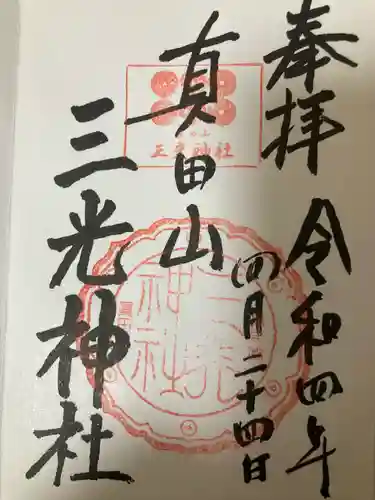 奉拝
令和四年
四月二十四日
真田山
三光神社
三光
神社